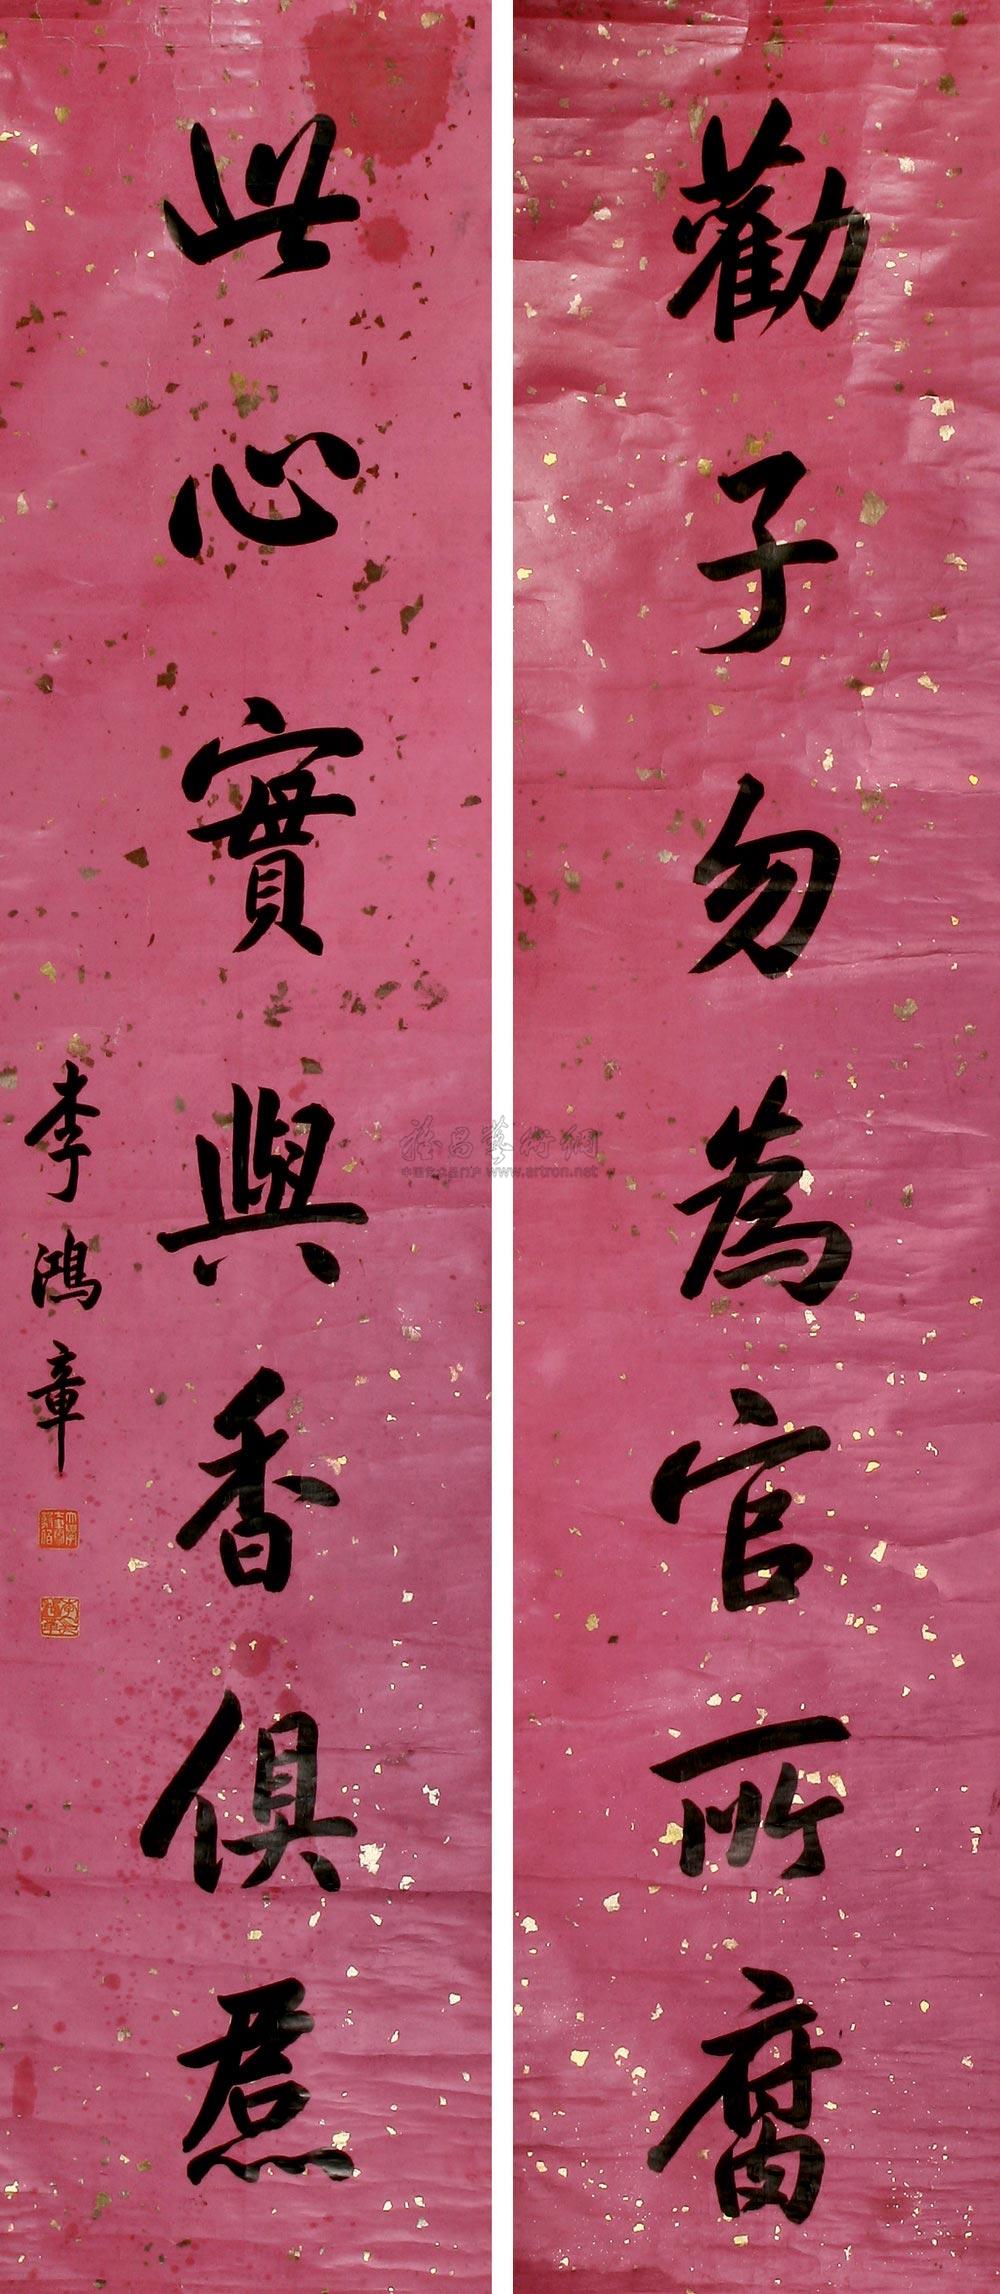 勸子勿為官所腐
此心實與香俱焄
李鴻章
雅昌藝術網
www.artron.net